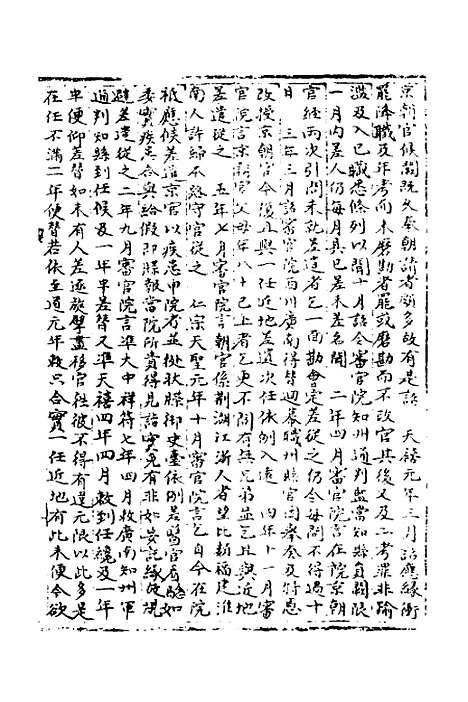 京朝官候闕既久奉朝請者頗多故有是詔　天禧元年三月詔應緣衝
罷降職及年考而未磨勘者罷或磨勘而不改官其後又及二考罪非踰
濫及入已贓悉條列以聞十月詔令審官院知州通判監當知縣員闕限
一月內差人仍每月具已差未差名聞　二年四月審官院言在院京朝
官經兩次引問未就差遣者乞一面勘會定差從之仍令每問不得過十
日　三年三月詔審官院西川廣南得替迴幕職州縣官因舉奏及特恩
改授京朝官今後且與一任近地差遣次任依例入遠　四年十一月審
官院言京朝官父母年八十已上者乞更不問有無兄弟並乞且與近地
差遣從之　五年七月審官院言朝官係荊湖江浙人者望比類福建淮
南人許歸不路守官從之　仁宗天聖元年十月審官院言乞自今在院
祗應候差遣京官以疾患申院者並挑狀牒御史臺依例差醫官看驗如
委實疾患合與給假即牒報當院所貴得見詣實免有非如妄託緣疾規
避差遣從之二年九月審官院言準大中祥符七年四月敕廣南知州軍
通判知縣到任候及一年半差替又準天禧四年四月敕到任纔及一年
半便仰差替如未有人差逐旋擘畫移官往彼不得有違元限以此多是
在任不滿二年便替若依至道元年敕只合實一任近地有此未便今欲